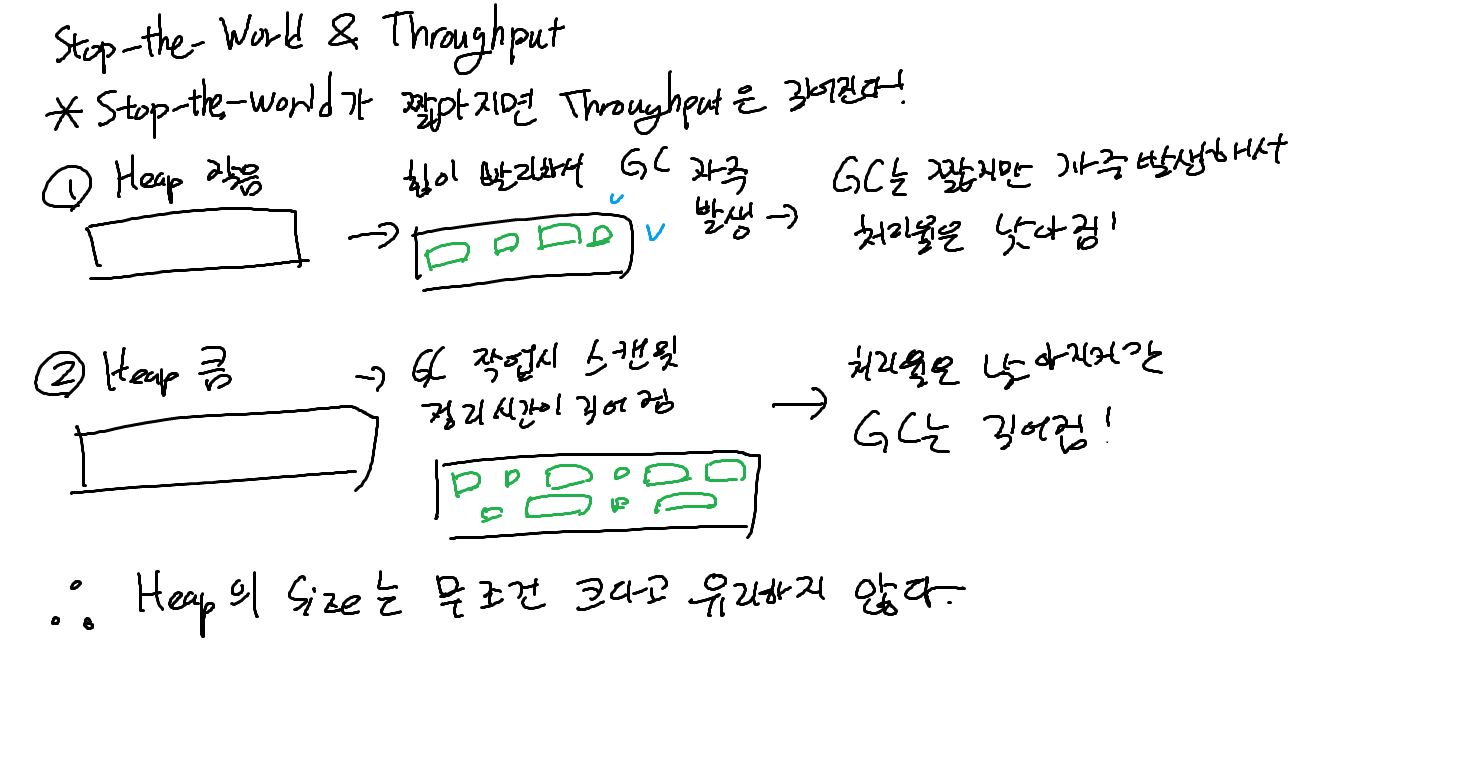 Stop-the-World & Throughput
* Stop-the-world가 짧아지면 Throughput은 길어진다!
① Heap 작음
힙이 빨리차서 GC 자주
발생 →
GC는 짧지만 자주발생해서
처리율은 낮아짐!
② Heap 큼
→ GC 작업시 스캔 및
정리시간이 길어짐
→ 처리율은 낮아지지만
GC는 길어짐!
∴ Heap의 Size는 무조건 크다고 유리하지 않다.